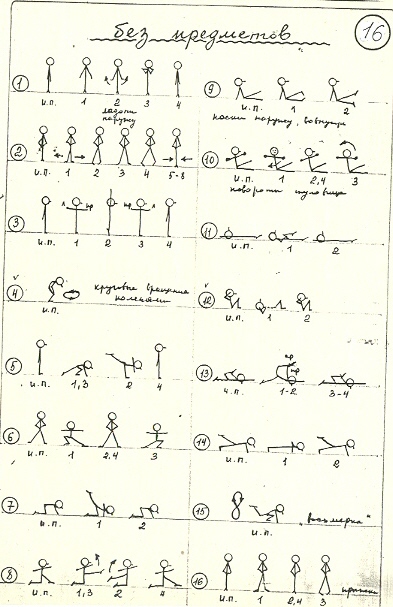 без предметов
16
1
и.п. 1 2 3 4
ладони
наружу
2
и.п. 1 2 3 4 5-8
3
л пр пр л
и.п. 1 2 3 4
4
круговые вращения
коленями
и.п.
5
и.п. 1,3 2 4
6
и.п. 1 2,4 3
7
и.п. 1 2
8
и.п. 1,3 2 4
9
и.п. 1 2
носки наружу, вовнутрь
10
и.п. 1 2,4 3
повороты туловища
11
и.п. 1 2
12
и.п. 1 2
13
пр
пр
и.п. 1-2 3-4
14
и.п. 1 2
15
и.п.
"восьмерка"
16
и.п. 1 2 3
прыжки